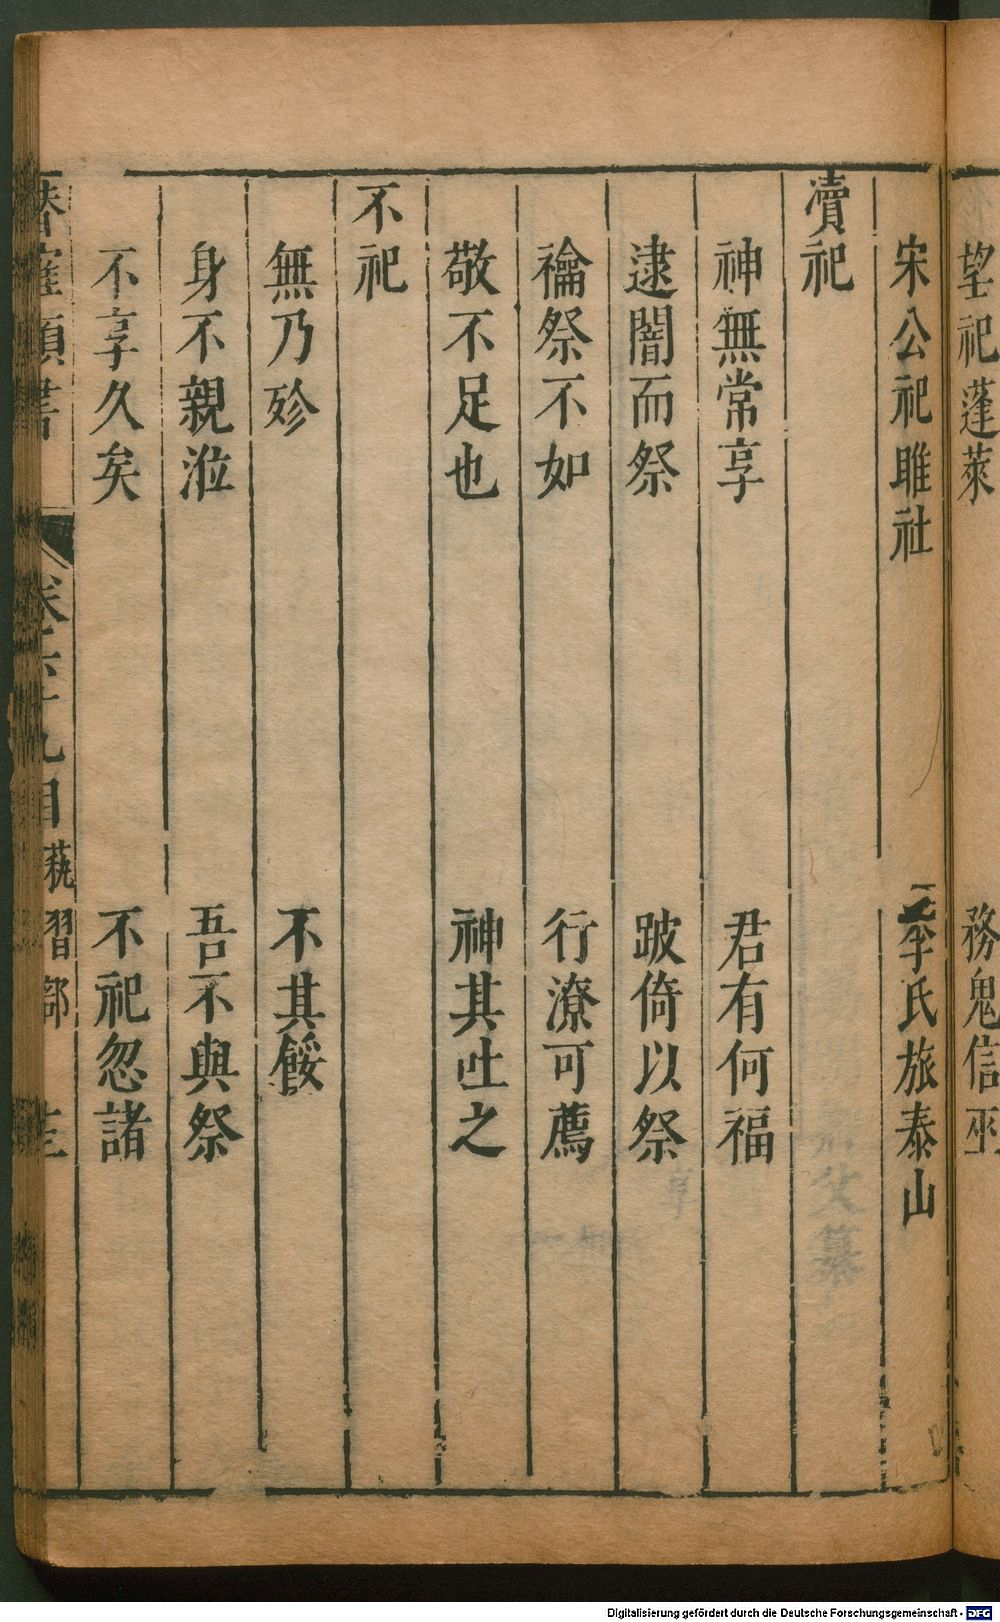 望祀蓬萊 務鬼信巫
宋公祀雎社 季氏旅泰山
瀆祀
神無常享 君有何福
逮闇而祭 跛倚以祭
禴祭不如 行潦可薦
敬不足也 神其吐之
不祀
無乃殄 不其餒
身不親涖 吾不與祭
不享久矣 不祀忽諸
卷六十九目 蓺習部
Digitalisierung gefördert durch die Deutsche Forschungsgemeinschaft - DFG